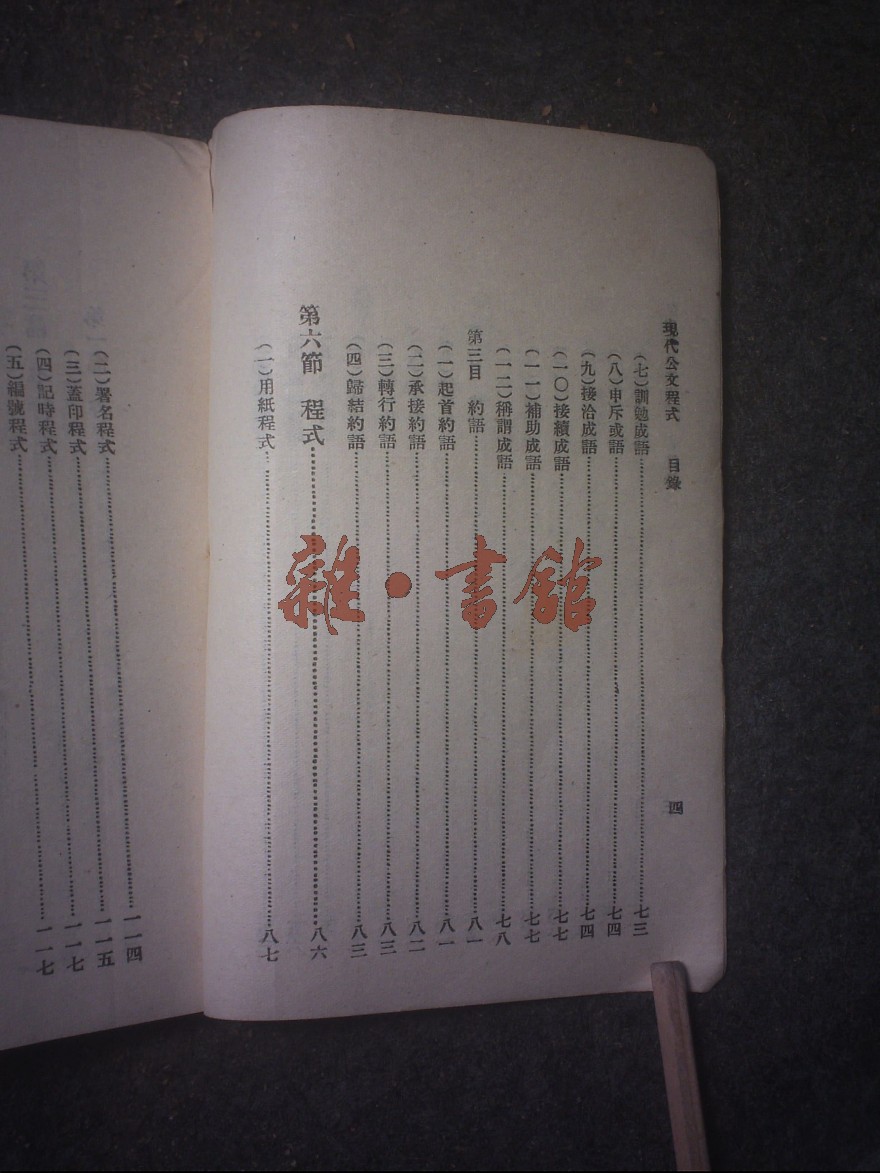 現代公文程式 目錄
四
(七)訓勉成語……七三
(八)申斥或語……七四
(九)接洽成語……七四
(一〇)接續成語……七七
(一一)補助成語……七七
(一二)稱謂成語……七八
第三目 約語……八一
(一)起首約語……八一
(二)承接約語……八二
(三)轉行約語……八三
(四)歸結約語……八三
第六節 程式……八六
(一)用紙程式……八七
(二)署名程式……一一四
(三)蓋印程式……一一五
(四)記時程式……一一七
(五)編號程式……一一七
雜·書館